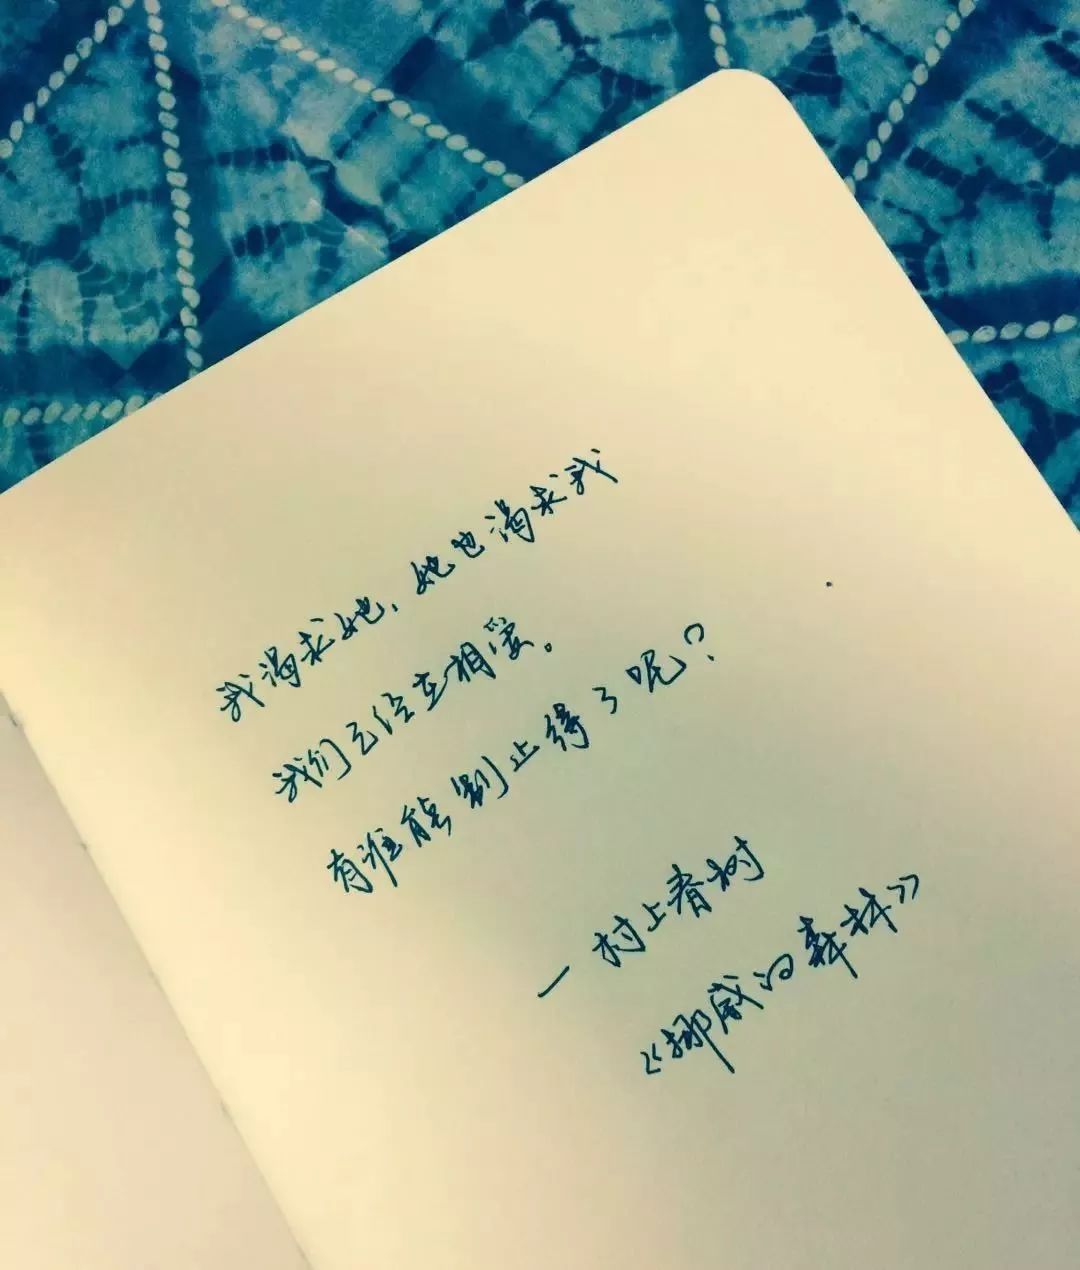 我渴求她，她也渴求我
我们已经在相爱。
有谁能制止得了呢？
—村上春树
《挪威的森林》